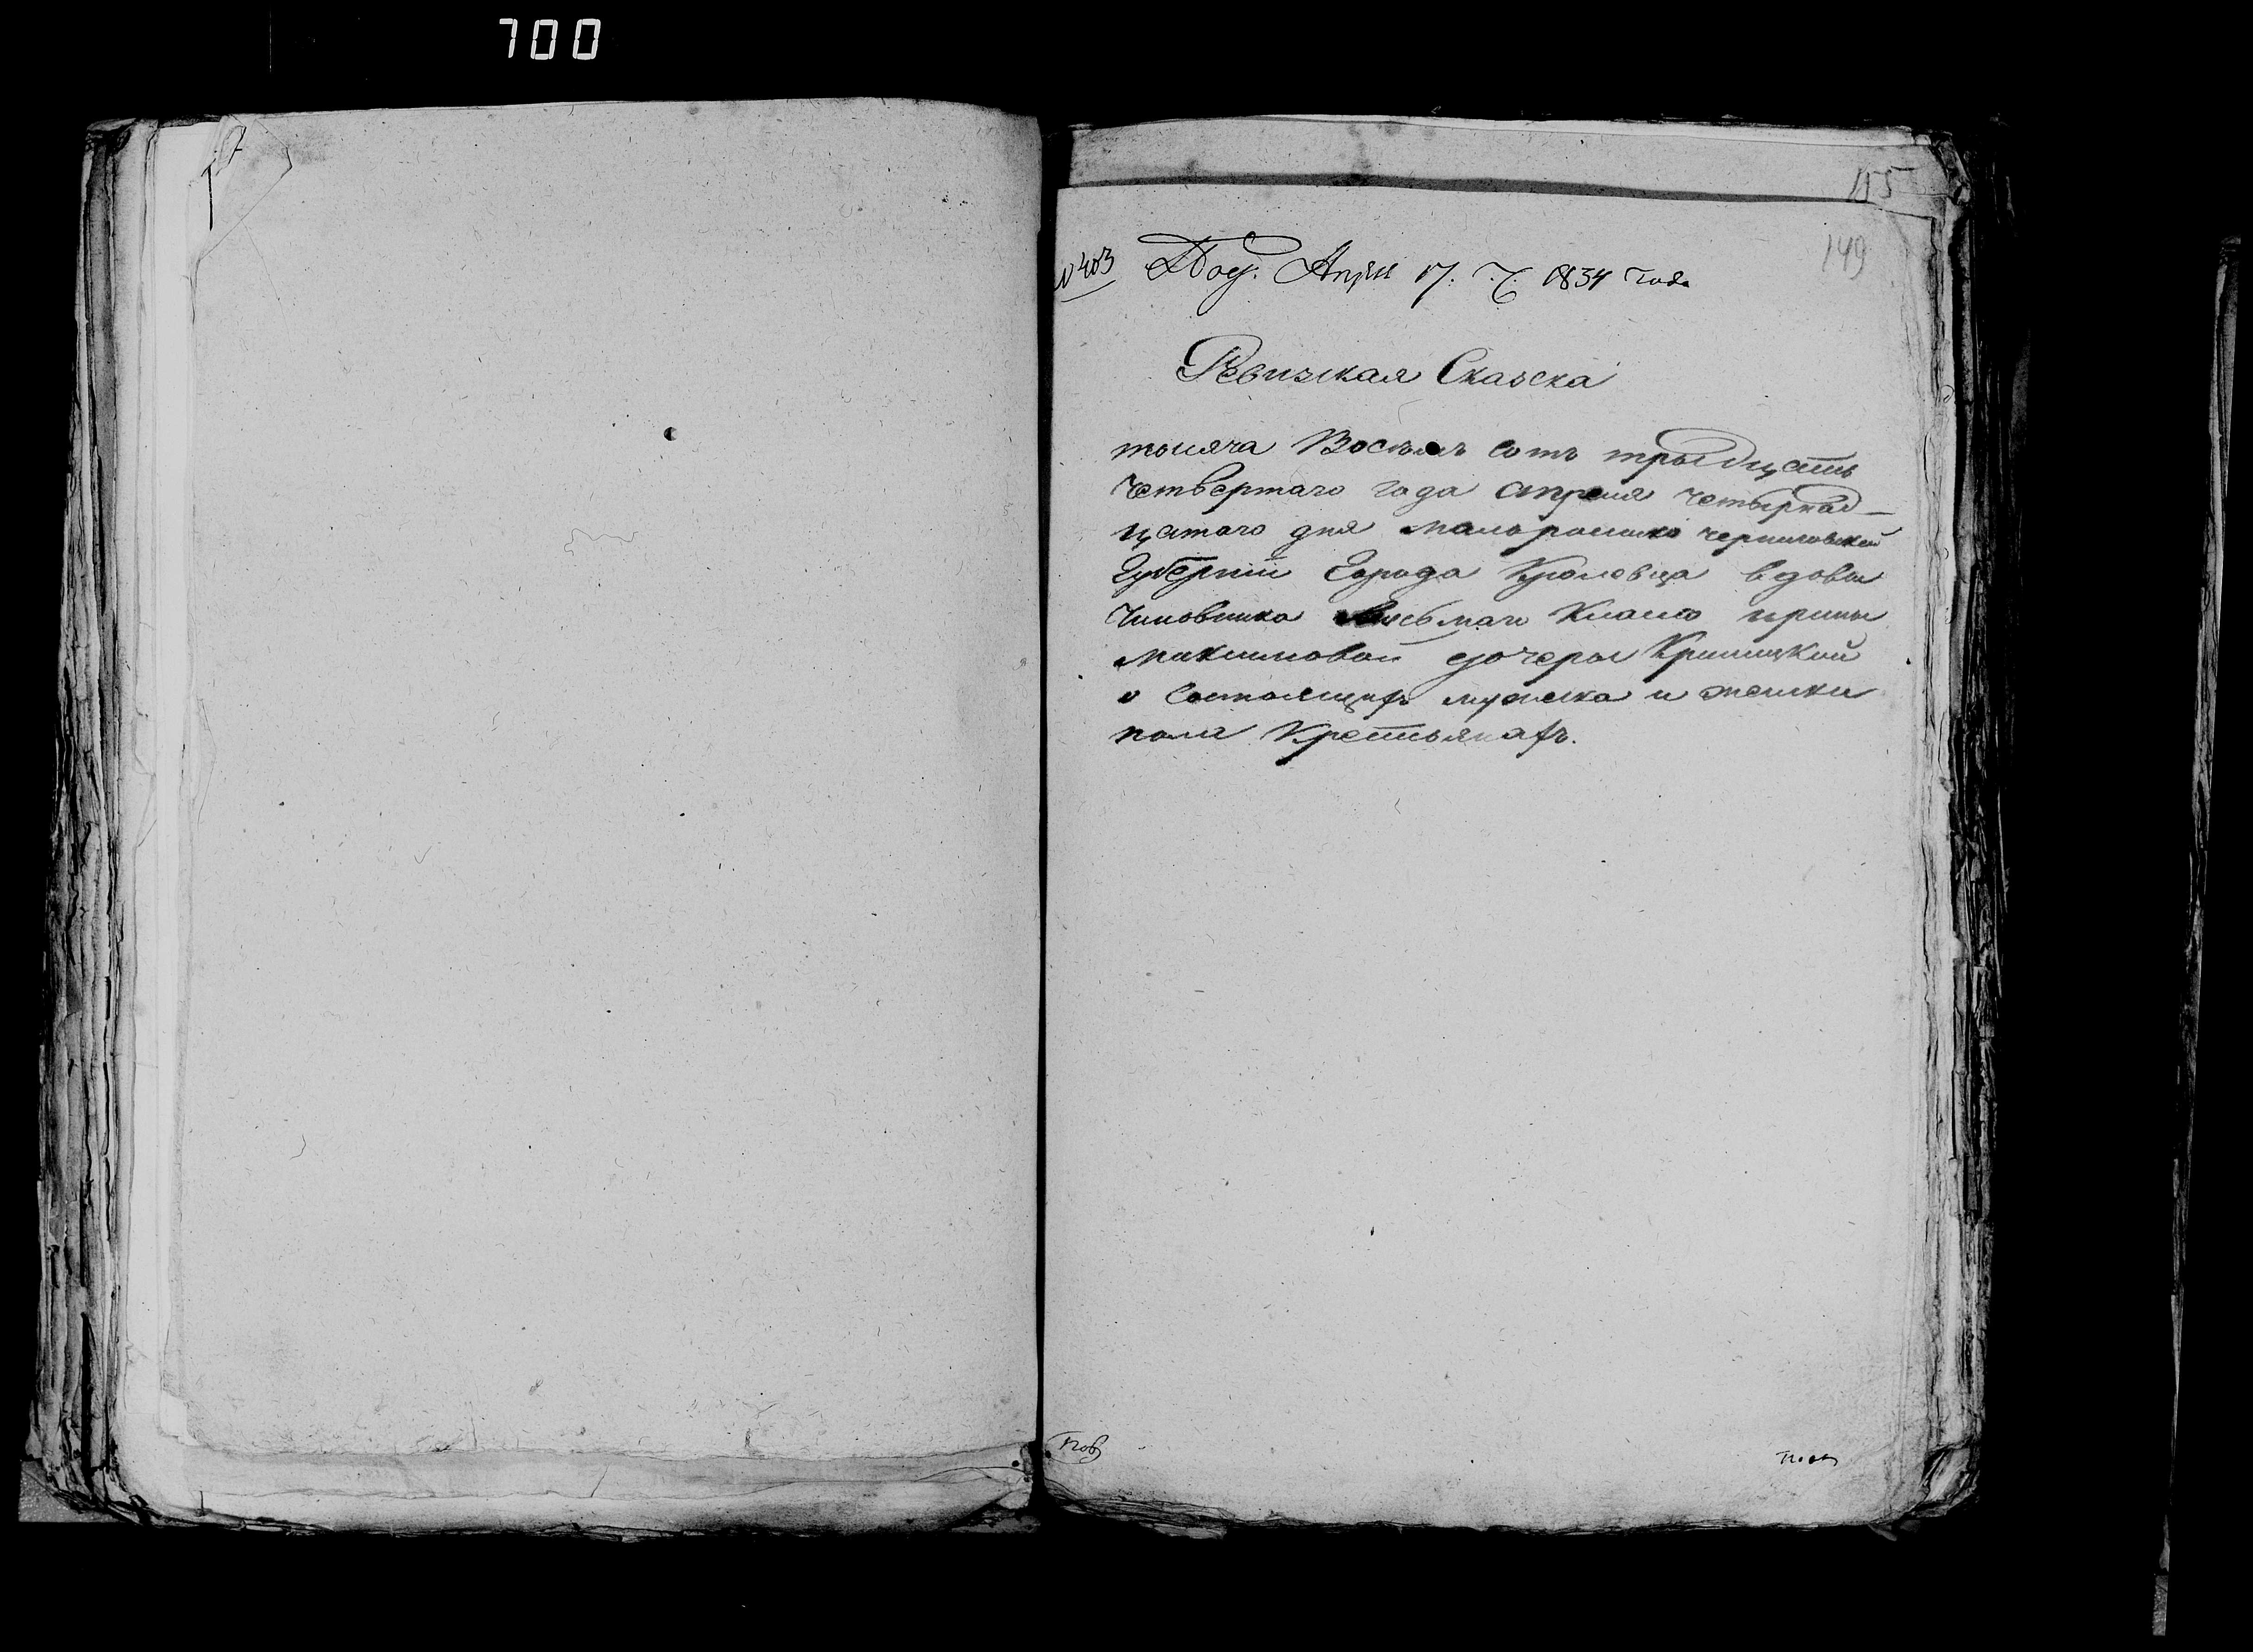 700
115
149
№ 403 Апрел 17. Ч. 1834 года
Ревизкая Сказска
тысяча Восемъ сотъ трыдцать
Четвертаго года апреля четырнад-
цатаго дня малоросийско черниговской
Губернии Города Кролевца вдовы
Чиновника восьмаго Класса ирины
максимовой дочеры Криницкой
о Состоящихъ мужеска и женска
пола Крестьянахъ.